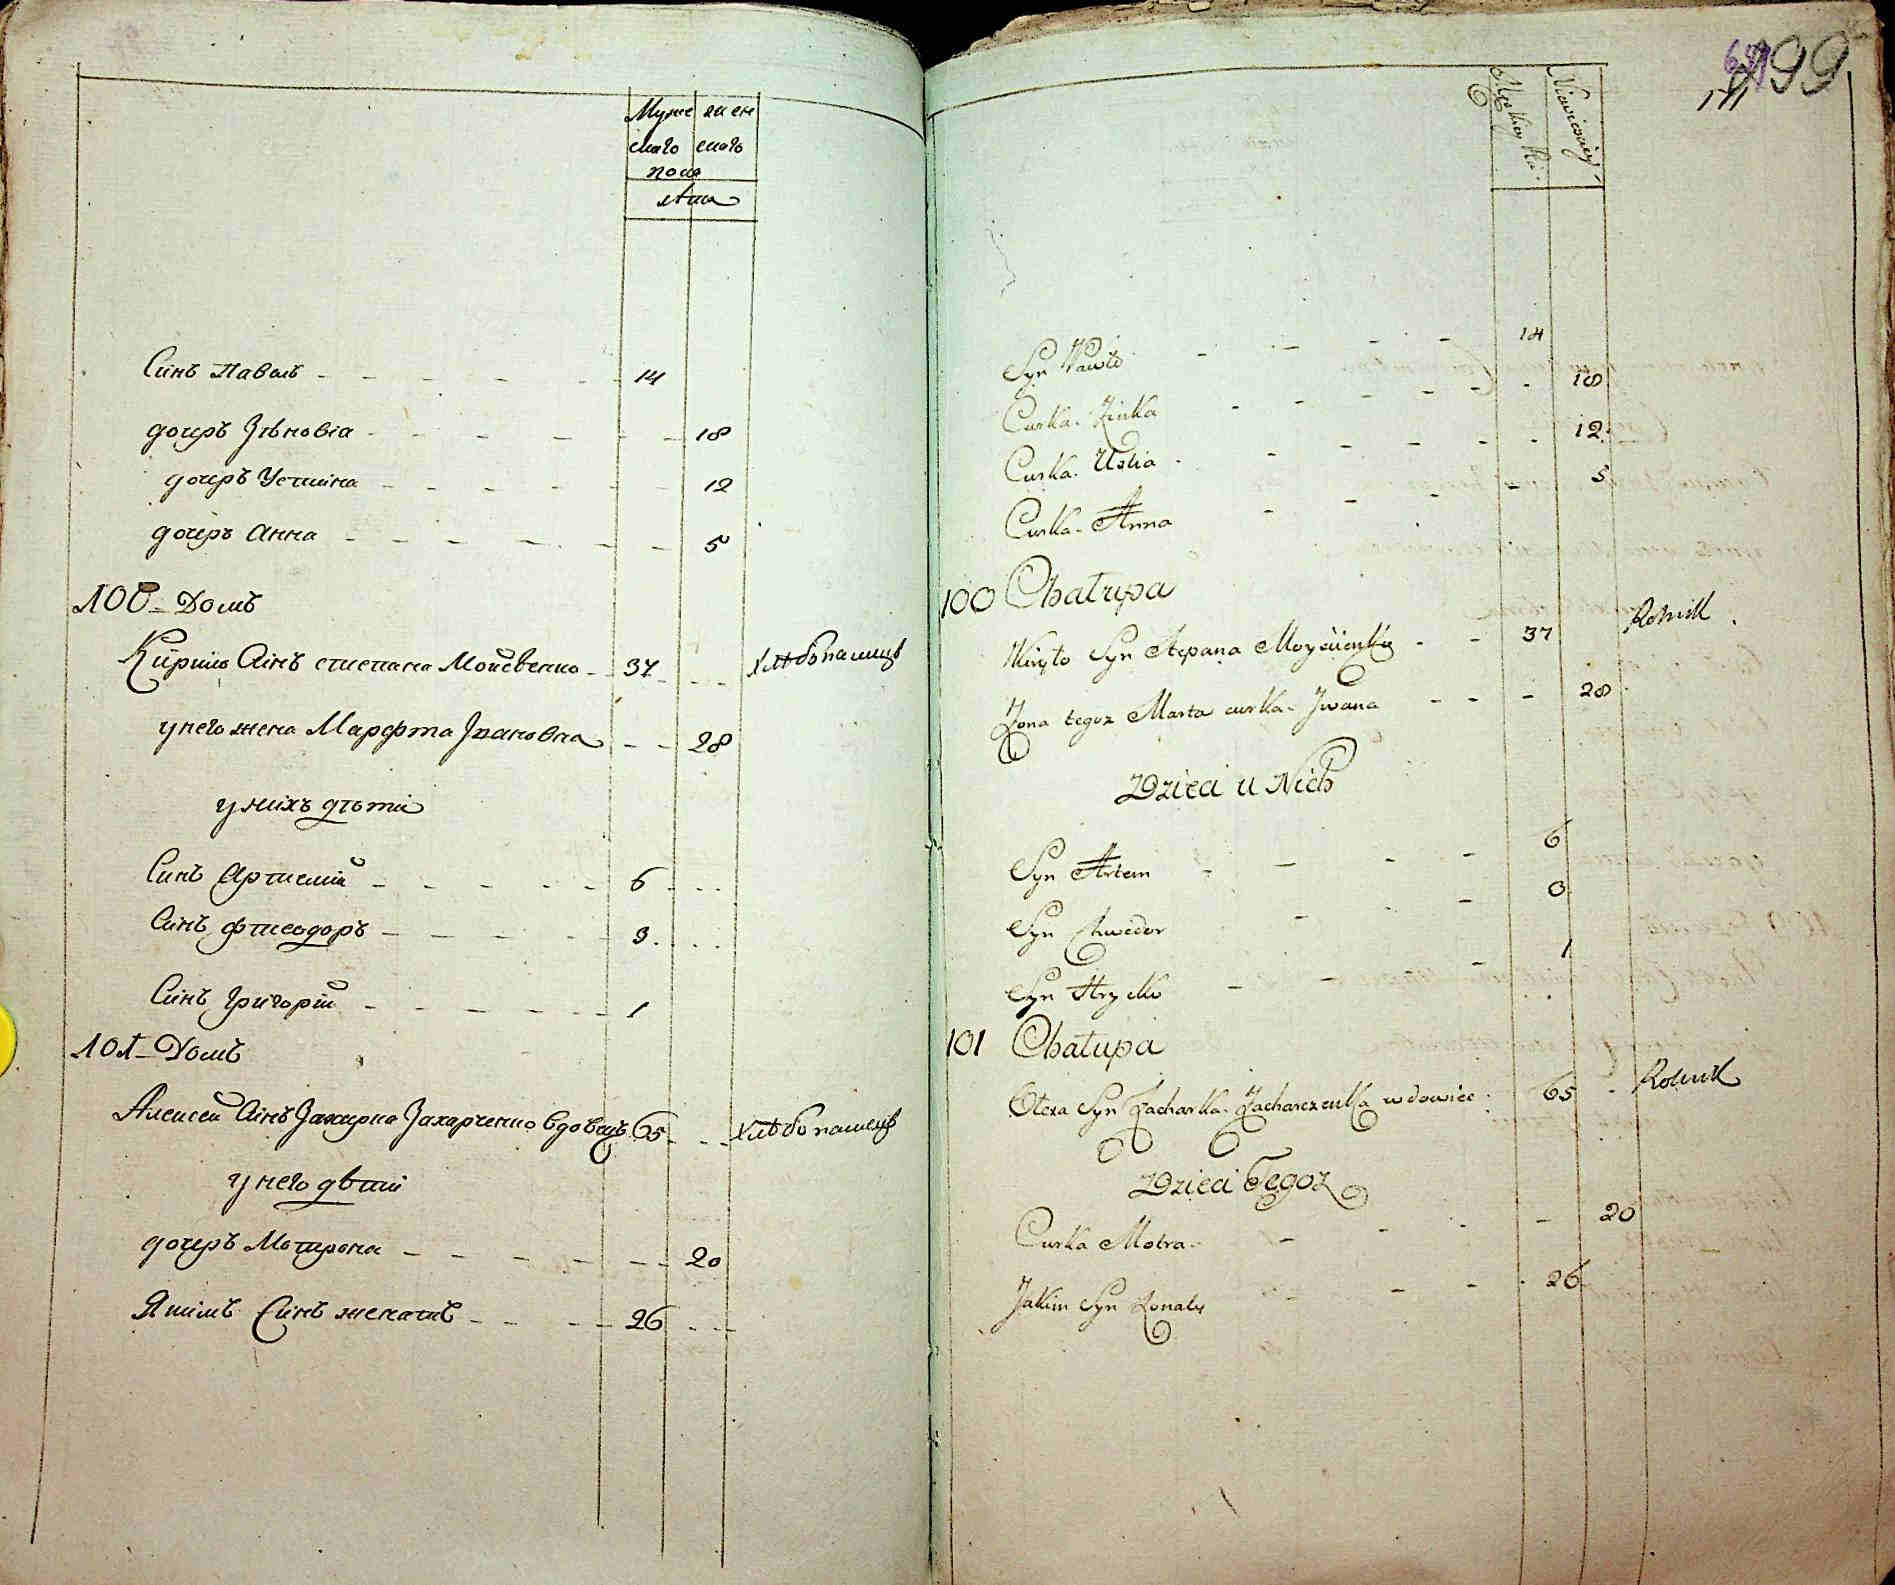 Муже жен
скаго скаго
пола
лѣта
Синъ Павелъ - - - - - 14
дочеръ Зѣновіа - - - - - 18
дочеръ Устина - - - - - 12
дочеръ Анна - - - - - 5
100 - Домъ
Кирило Синъ степана Мойсѣенко - - 37 - - - Хлѣбопашецъ
у него жена Марфта Івановна - - 28
у нихъ дѣти
Синъ Артемій - - - - - 6 - - -
Синъ Фтеодоръ - - - - - 3 - - -
Синъ Григорій - - - - - 1
101 - Домъ
Алексей Синъ Захарка Захарченко вдовецъ 65 - - - Хлѣбопашецъ
у него дѣти
дочеръ Мотрона - - - - - 20
Якимъ Синъ женатъ - - - - 26 - - -
199
171
Męskiey
Niewieściey
Syn Pawło - - - - 14
Curka Zinka - - - - - 18
Curka Ustia - - - - - 12
Curka Anna - - - - 5
100 Chałupa
Kiryło Syn Stepana Moysiienka - - 37 Rolnik
Zona tegoz Marta curka Jwana - - - 28
Dzieci u Nich
Syn Artem - - - - 6
Syn Chwedor - - 3
Syn Hrycko - - - 1
101 Chałupa
Olexa Syn Zacharka Zacharczenka wdowiec 65 - Rolnik
Dzieci Tegoz
Curka Motra - - - - 20
Jakim Syn Zonaty - - - 26